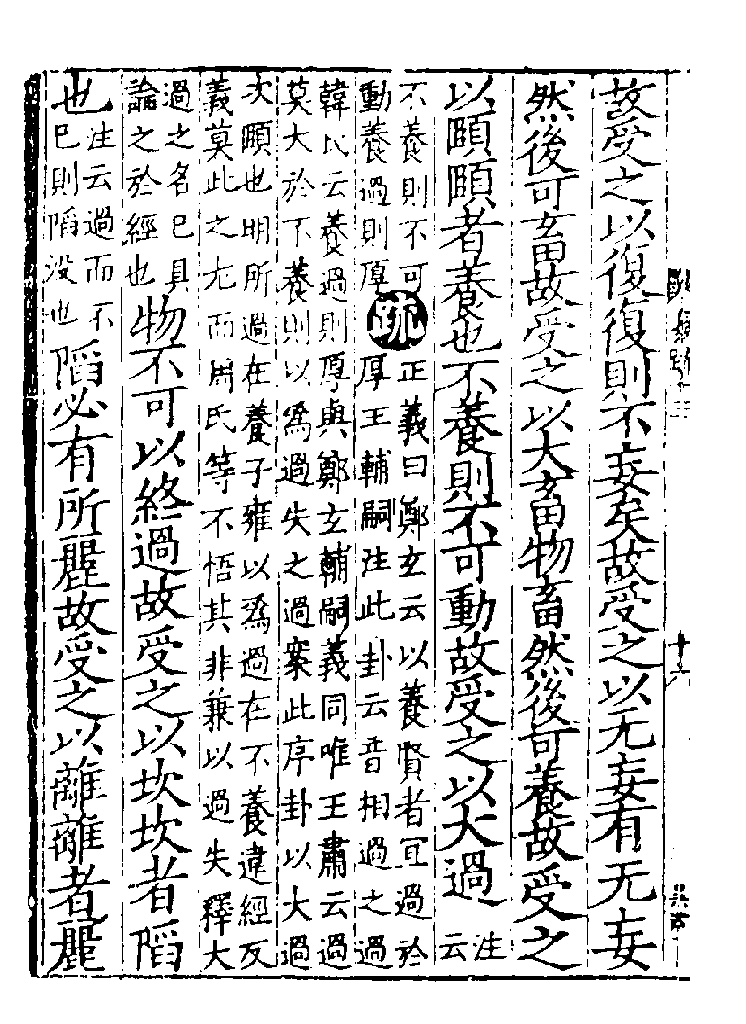 故受之以復復則不妄矣故受之以无妄有无妄
然後可畜故受之以大畜物畜然後可養故受之
以頤頤者養也不養則不可動故受之以大過注云
不養則不可
動養過則厚
疏
正義曰鄭玄云以養賢者宜過於
厚王輔嗣注此卦云音相過之過
韓氏云養過則厚與鄭玄輔嗣義同唯王肅云過
莫大於不養則以爲過失之過案此序卦以大過
次頤也明所過在養子雍以爲過在不養違經反
義莫此之尤而周氏等不悟其非兼以過失釋大
過之名已具
論之於經也
物不可以終過故受之以坎坎者陷
也
注云過而不
已則陷没也
陷必有所麗故受之以離離者麗